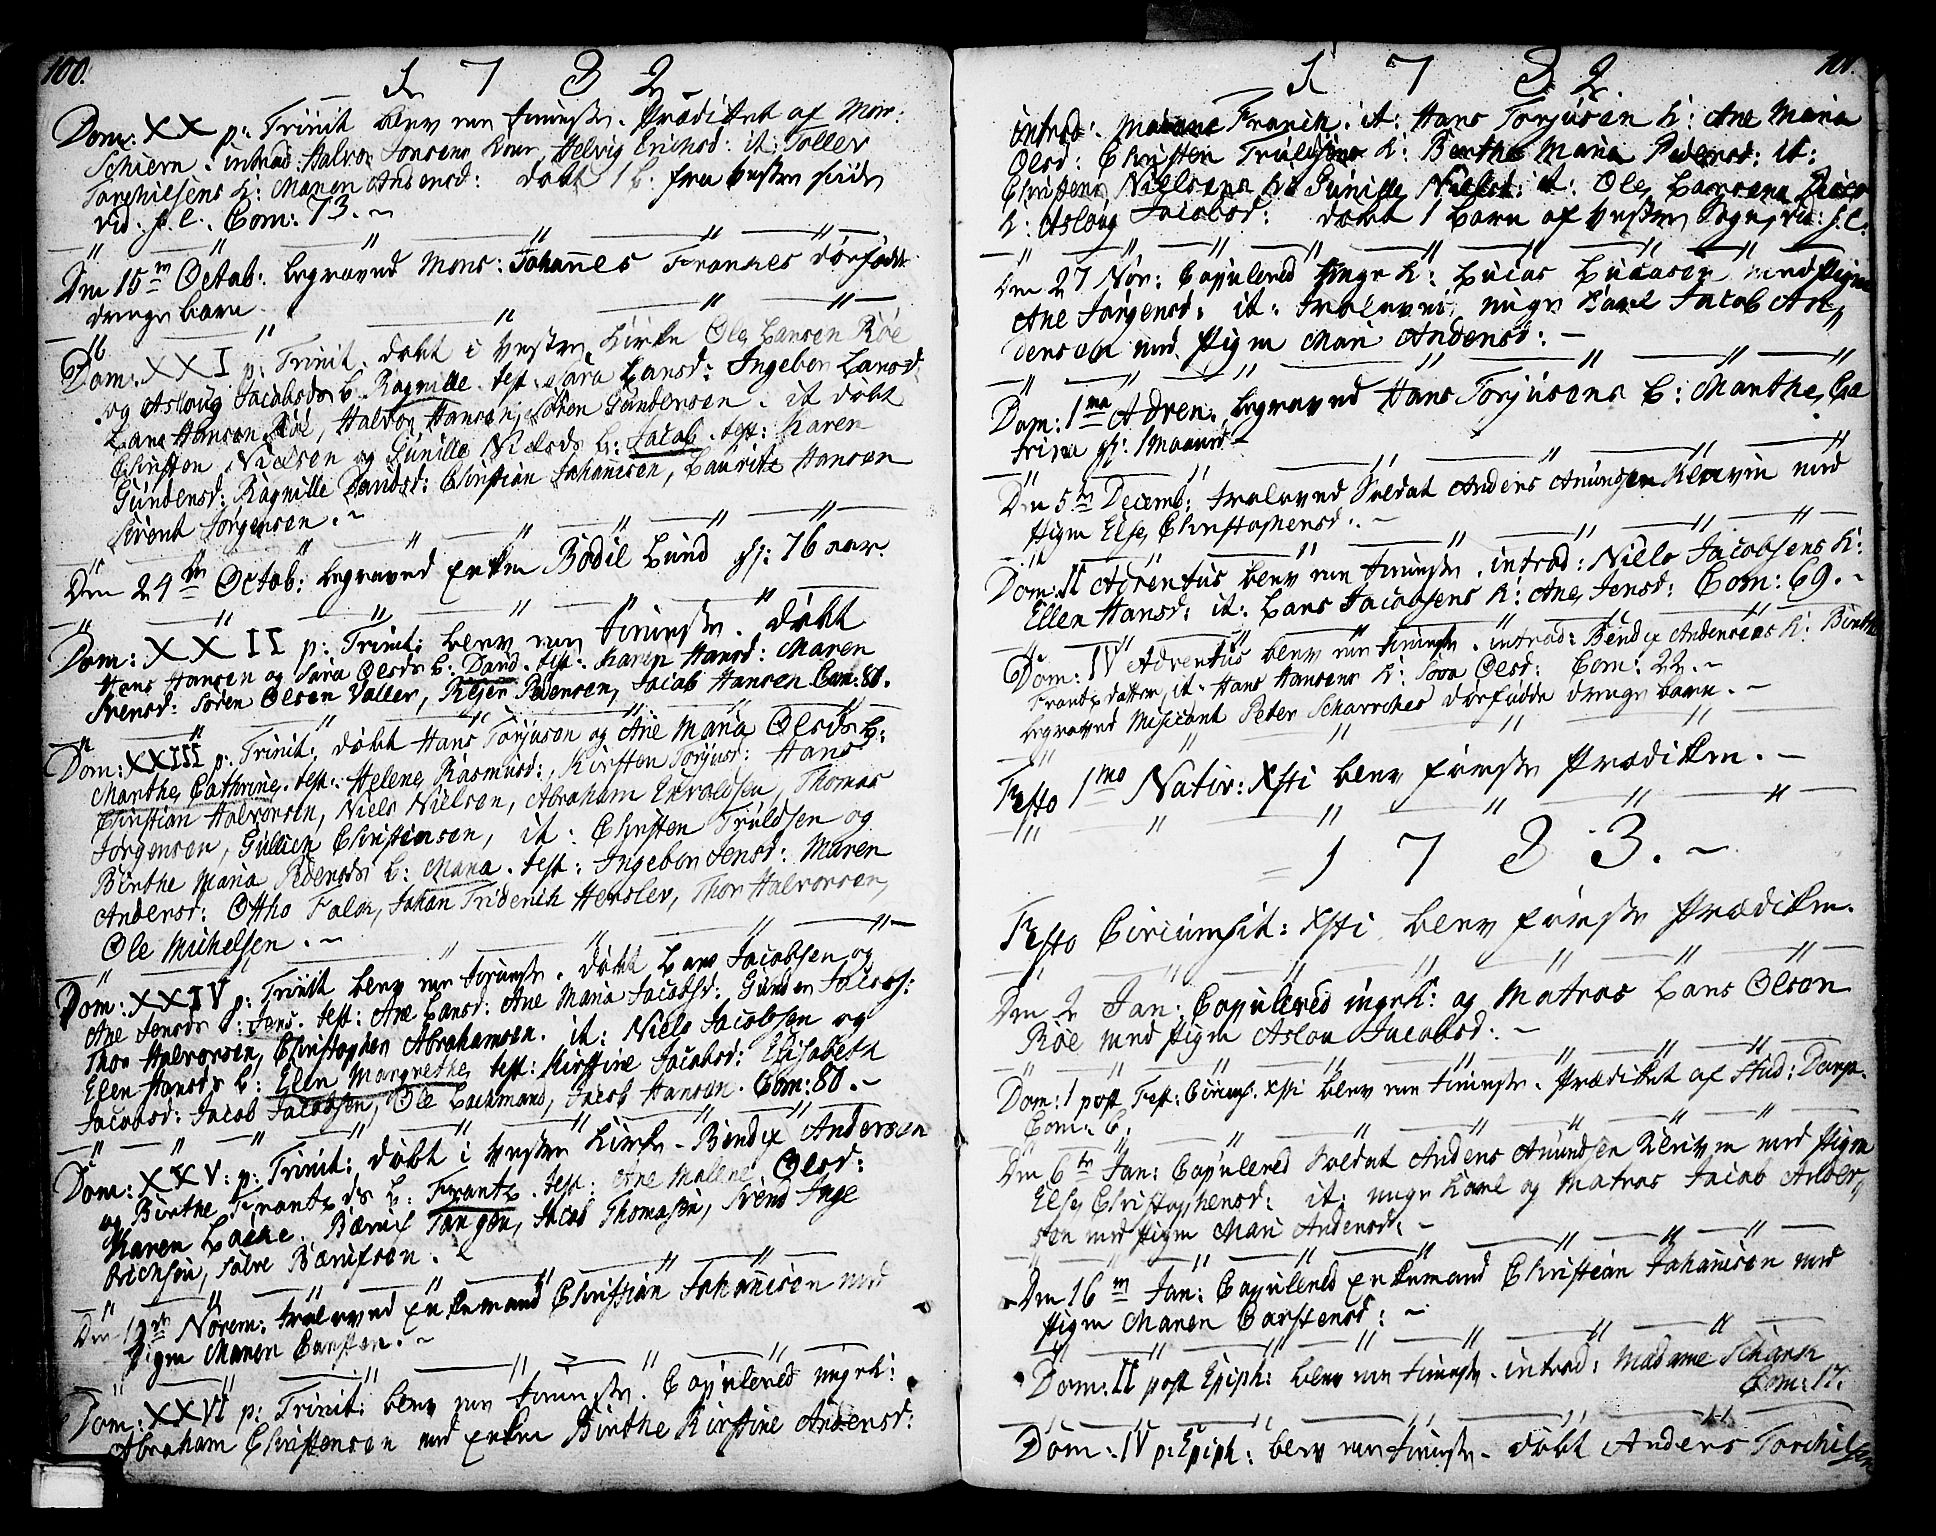 100.
1 7 8 2
Dom: XX p: Trinit blev ren tieniste. Prædiket af Mor:
Schiern. introd: Halvor Jonsens Kone, Helvig Erichsd: it: Toller
Torchilsens K: Maren Andersd: døbt 1 b: fra Vestre siide
vid: s. l. Com: 73.
Den 15de Octob: begraved Mons: Johannes Frankes dødføde
drenge barn
Dom: XXI p: Trinit. døbt i Vestre Kirke Ole Larsen Röe
og Asloug Jacobsds b. Ragnille. test. Sara Larsd: Ingebor Larsd:
Lars Hansen Röe, Halvor Hansen, Søren Gundersen. it døbt
Christen Nielsen og Gunille Nielsds b: Jacob. test: Karen
Gundersd: Ragnille Davidsd: Christian Johannsen, Lauritz Hansen
Sivert Jørgensen.
Den 24de Octob: begraved Enken Bodil Lund gl: 76 aar.
Dom: XXII p: Trinit: blev ren tieniste. døbt
Hans Hansen og Sara Olsds b: David. test: Karen Hansd: Maren
Svensd: Søren Olsen Valler, Rejer Pedersen, Jacob Hansen Com: 80.
Dom: XXIII p: Trinit: døbt Hans Torjusen og Ane Maria Olsds b:
Marthe Cathrine. test: Helene Rasmusd:, Kirsten Torjusd: Hans
Christian Halvorsen, Niels Nielsen, Abraham Enevoldsen, Thomas
Jørgensen, Gullich Christensen, it: Christen Truldsen og
Birthe Maria Pedersds b: Maria. test: Ingebor Jensd: Maren
Andersd: Ottho Falck, Johan Friderich Henslev, Thor Halvorsen,
Ole Michelsen.
Dom: XXIV p: Trinit blev ren tieniste. døbt Lars Jacobsen og
Ane Jensds b: Jens. test: Ane Larsd: Ane Maria Jacobsd: Gunder Jacobs:
Thor Halvorsen, Christopher Abrahamsen. it: Niels Jacobsen og
Elen Hansds b: Elen Margrethe, test: Kirstine Jacobsd: Elisabeth
Jacobsd: Jacob Jacobsen, Ole Lachmand, Jacob Hansen. Com: 80.
Dom: XXV: p: Trinit: døbt i Vestre Kirke Bendix Andersen
og Birthe Frantz ds b: Frantz. test: Ane Malene Olsd:
Karen Bærulf Tangen, Jacob Thomasen, Svend Inge
brichsen, Salve Bærulfsen.
Novem: trolovved Enkemand Christian Johannisen med
Pigen Maren Carsten.
Dom: XXVI p: Trinit: blev ren tieniste. Copulered ungk:
Abraham Christensen med Enken Birthe Kirstine Andersd:
101.
1 7 8 2
introd: Franck. it: Hans Torjusen K: Ane Maria
Olsd: Christen Truldsens K: Birthe Maria Pedersd: it:
Christens Nielsens K: Gunille Nielsd: it: Ole Larsens
K: Asloug Jacobsd: døbt 1 barn af Vestre Sogn, vid: s. l.
Den 27 Nov: Copulered Unge K: Lucas Lucasen med Pigen
Ane Jørgensd: it: trolovet unge Karl Jacob An„
dersen med Pigen Mari Andersd:
Dom: 1ma Adven: begraved Hans Torjusens b: Marthe Ca
trina gl: 1 Maaned
Den 5te Decemb: trolovved Soldat Anders Amundsen Kleivin med
Pigen Else Christophersd:
Dom: II Adventus blev ren tieniste. introd: Niels Jacobsens K:
Ellen Hansd: it: Lars Jacobsens K: Ane Jensd: Com: 69.
Dom: IV Adventus blev ren tieniste. introd: Bendix Andersens K: Birthe
Frantz datter, it: Hans Hansens K: Sara Olsd: Com: 22.
begraved Musicant Peter Scharrches dødfødde drenge barn.
Festo 1mo Nativ: Xsti blev første Prædiken.
1 7 8 3.
Festo Circumsit: Xsti blev første Prædiken.
Den 2 Jan: Copulered ungk: og Matros Lars Olsen
Röe med Pigen Aslou Jacobsd:
Dom: 1 post Fest: Circums. Xsti blev ren tieniste. Prædiket af Stud: Dorp.
Com: 6.
Den 6te Jan: Copulered Soldat Anders Amundsen Kleiven med Pigen
Else Christophersd: it: unge Karl og Matros Jacob Ander„
sen med Pigen Mari Andersd:
Den 16de Jan: Copulered Enkemand Christian Johannisen med
Pigen Maren Carstensd:
Dom: II post Epiph: blev ren tieniste. introd: Madame Schank
Com: 17.
Dom: IV p: Epiph: blev ren tieniste. døbt Anders Torchilsen